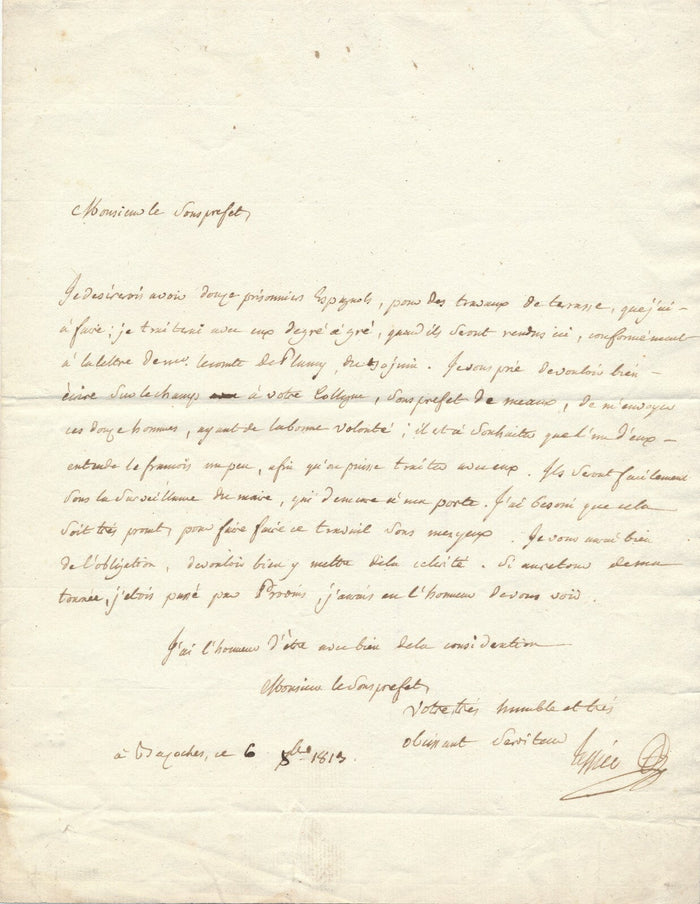 Monsieur le Sousprefet,
Je desirerois avoir douze prisonniers Espagnols, pour des travaux de terrasse, que j'ai
à faire; je traiterai avec eux degré à gré, quand ils seront rendus ici, conformément
à la lettre de mr. le comte de Plancy, du juin. Je vous prie de vouloir bien
écrire sur le champ à votre Collegue, sousprefet de meaux, de m'envoyer
ces douze hommes, ayant de la bonne volonté; il est à souhaiter que l'un d'eux
entende le francois un peu, afin qu'on puisse traiter avec eux. Ils seront facilement
sous la surveillance du maire, qui demeure à ma porte. J'ai besoin que cela
soit très promt, pour faire faire ce travail sous mes yeux. Je vous aurai bien
de l'obligation, de vouloir bien y mettre de la celerité. Si au retour de ma
tournée, j'etois passé par Provins, j'aurois eu l'honneur de vous voir.
J'ai l'honneur d'être avec bien de la consideration
Monsieur le Sousprefet,
votre très humble et très
obeissant Serviteur
Tessier
à Bazoches, ce 6 1813.